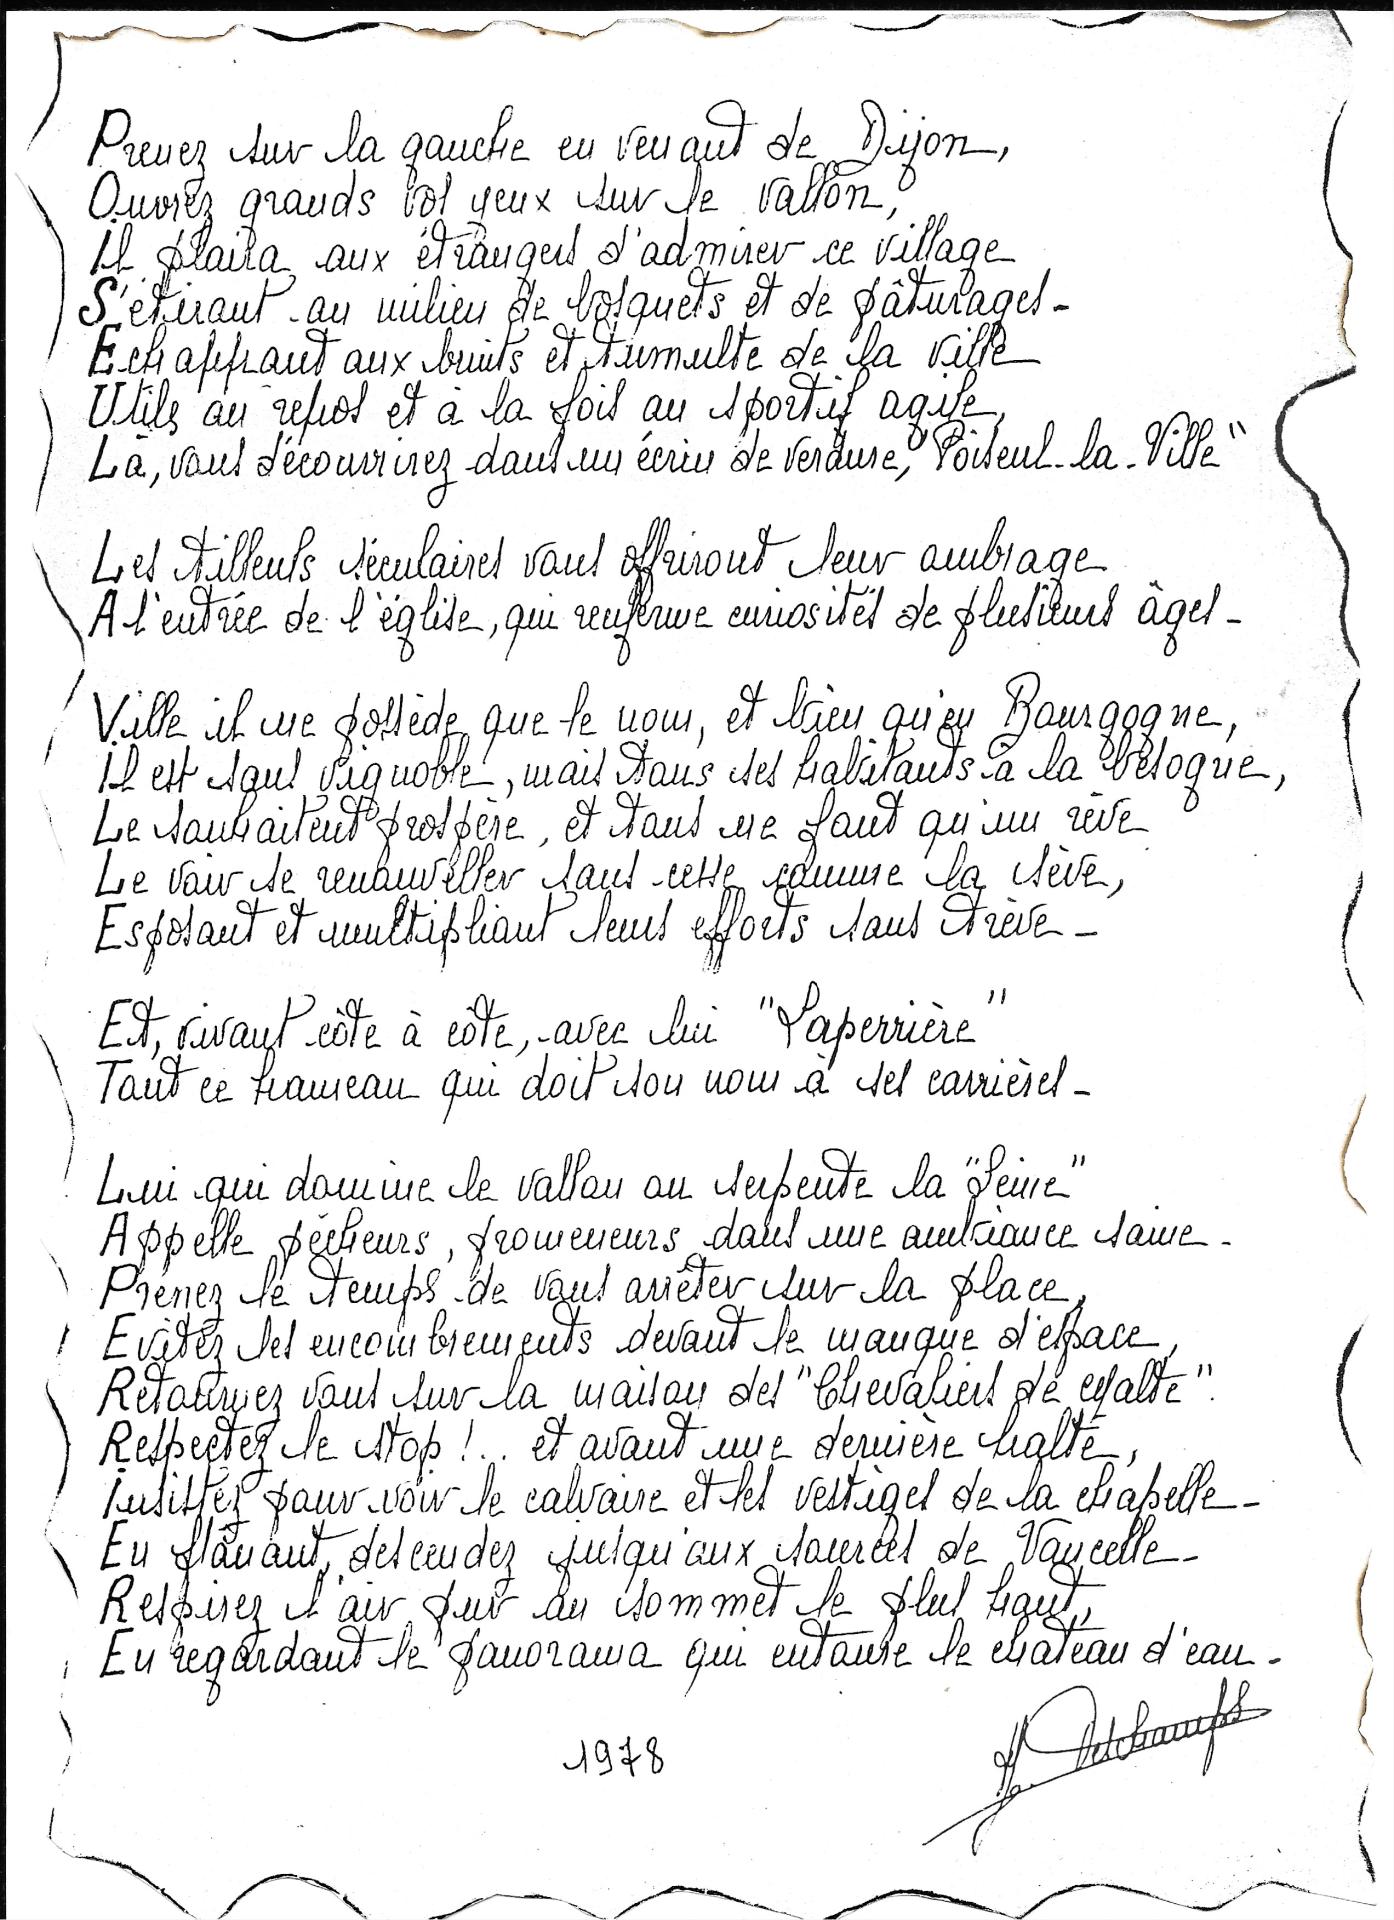 Prenez sur la gauche en venant de Dijon,
Ouvrez grands vos yeux sur le vallon,
Il plaira aux étrangers d'admirer ce village
S'étirant au milieu de bosquets et de pâturages -
Echappant aux bruits et tumulte de la ville
Utile au repos et à la fois au sportif agile,
Là, vous découvrirez dans un écrin de verdure, "Poiseul-la-Ville"
Les tilleuls séculaires vous offriront leur ombrage
A l'entrée de l'église, qui renferme curiosités de plusieurs âges -
Ville il ne possède que le nom, et bien qu'en Bourgogne,
Il est sans vignoble, mais tous ses habitants à la besogne,
Le souhaitent prospère, et tous ne font qu'un rêve
Le voir se renouveller sans cesse comme la sève,
Esposant et multipliant leurs efforts sans trève -
Et, vivant côte à côte, avec lui "Laperrière"
Tout ce hameau qui doit son nom à ses carrières -
Lui qui domine le vallon ou serpente la "Seine"
Appelle pêcheurs, promeneurs dans une ambiance saine -
Prenez le temps de vous arrêter sur la place,
Evitez les encombrements devant le manque d'espace,
Retournez vous sur la maison des "Chevaliers de Malte".
Respectez le stop !.. et avant une dernière halte,
Insistez pour voir le calvaire et les vestiges de la chapelle -
En flânant, descendez jusqu'aux sources de Vaucelle -
Respirez l'air pur au sommet le plus haut,
En regardant le panorama qui entoure le château d'eau -
1978
Deschamps